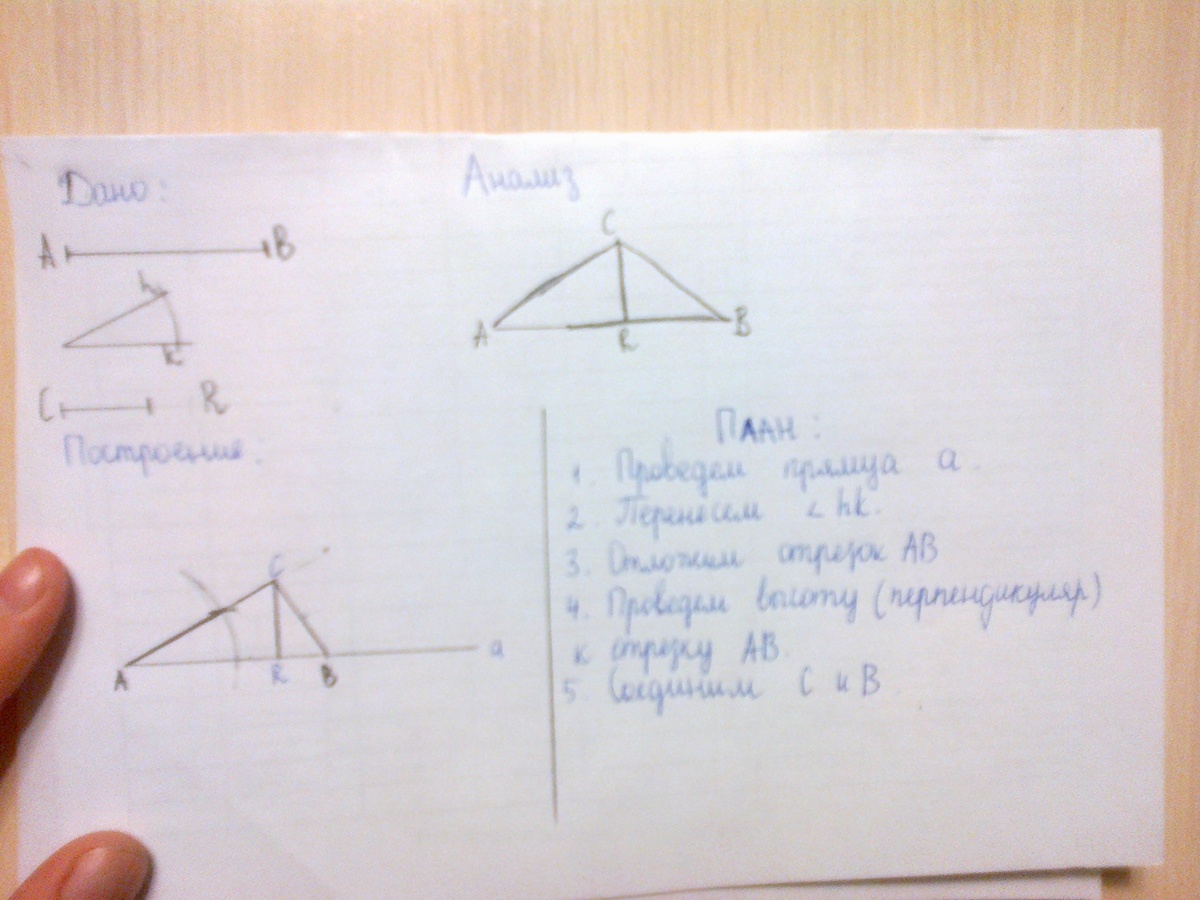 Дано:
A B
h
k
C R
Анализ
C
A R B
Построение:
C
A R B a
План:
1. Проведем прямца a.
2. Переносем < hk.
3. Отложим отрезок AB
4. Проведем высоту (перпендикуляр)
к отрезку AB.
5. Соединим C и B.